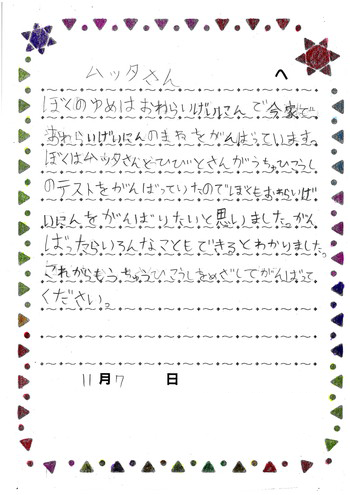 ムッタさん へ
ぼくのゆめはおわらいげいにんで今家で
おわらいげいにんのまねをがんばっています。
ぼくはムッタさんとひびとさんがうちゅひこうし
のテストをがんばっていたのでぼくもおわらいげ
いにんをがんばりたいと思いました。がん
ばったらいろんなこともできるとわかりました。
これからもうちゅうひこうしをめざしてがんばって
ください。
11月7 日